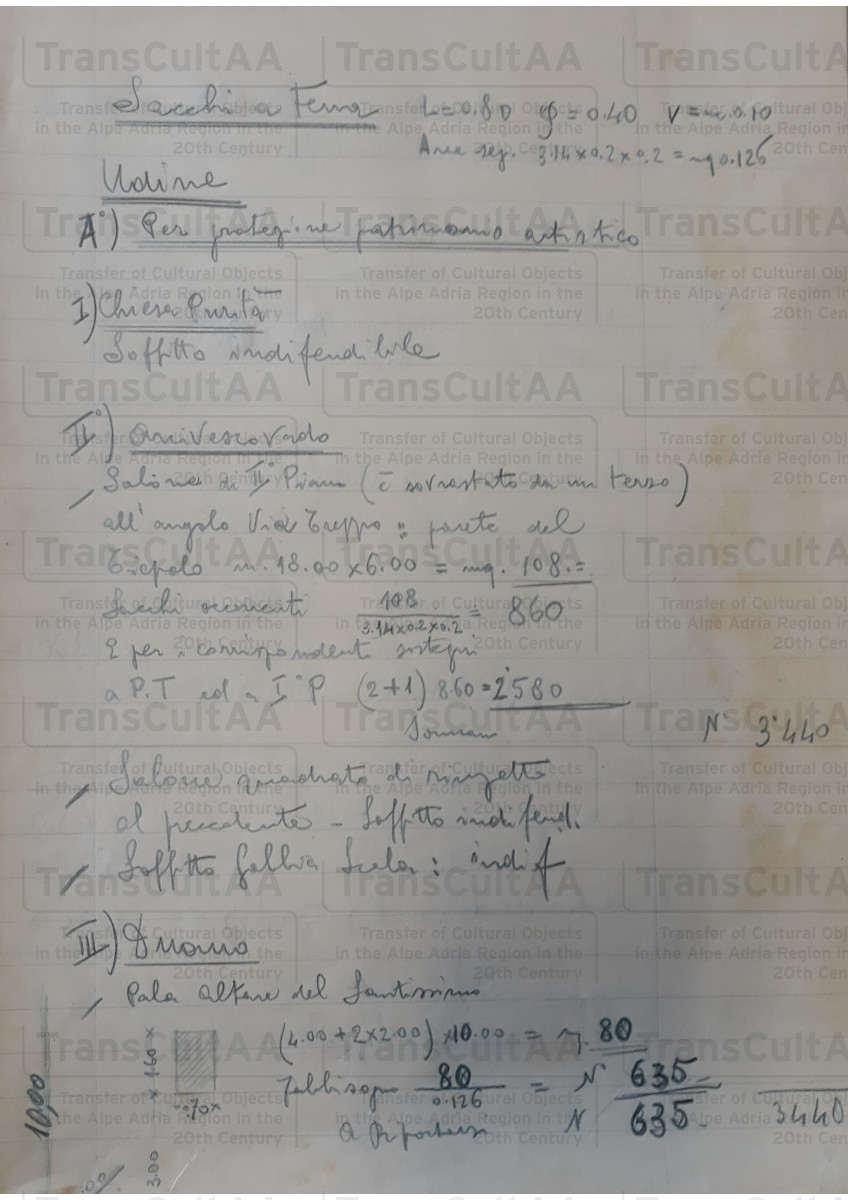 Sacchi a Terra L=0.80 φ=0.40 V=mc.0.10
Area seg. 3.14×0.2×0.2 = mq 0.126
Udine
A°) Per protezione patrimonio artistico
I) Chiesa Purità
Soffitto indifendibile
II°) Arcivescovado
Salone di II° Piano (è sovrastato da un terzo)
all'angolo Via Treppo: parete del
Tiepolo m. 18.00×6.00 = mq. 108.=
Sacchi occorrenti 108 / 3.14×0.2×0.2 = 860
E per i corrispondenti sostegni
a P.T ed a I°P (2+1) 860 = 2'580
Sommano N° 3'440
Salone quadrato di
al precedente - Soffitto indifend.
Soffitto Gabbia Scala: indif
III) Duomo
Pala Altare del Santissimo
(4.00+2×2.00)×10.00 = mq. 80
× 1.60 ×
Fabbisogno 80 / 0.126 = N° 635
.70×
10,00
3.00
a Riportare N 635 3440
TransCultAA
Transfer of Cultural Objects
in the Alpe Adria Region in the
20th Century